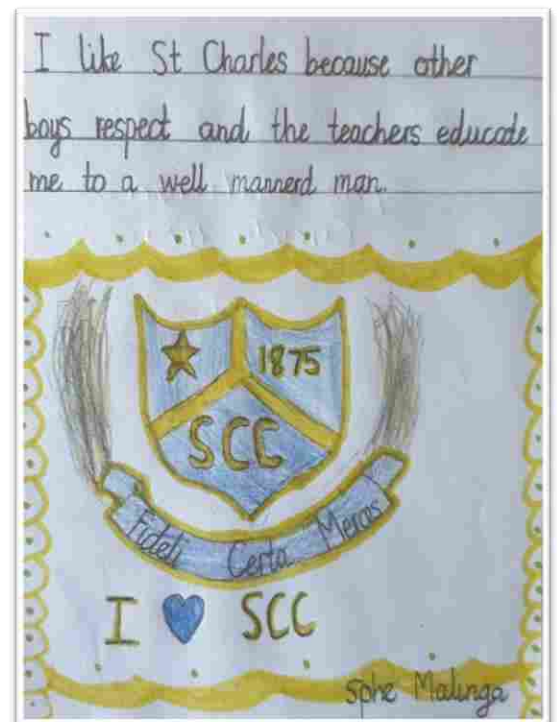 I like St Charles because other
boys respect and the teachers educate
me to a well mannerd man.
1875
SCC
Fideli Certa Merces
I SCC
Sphe Malinga